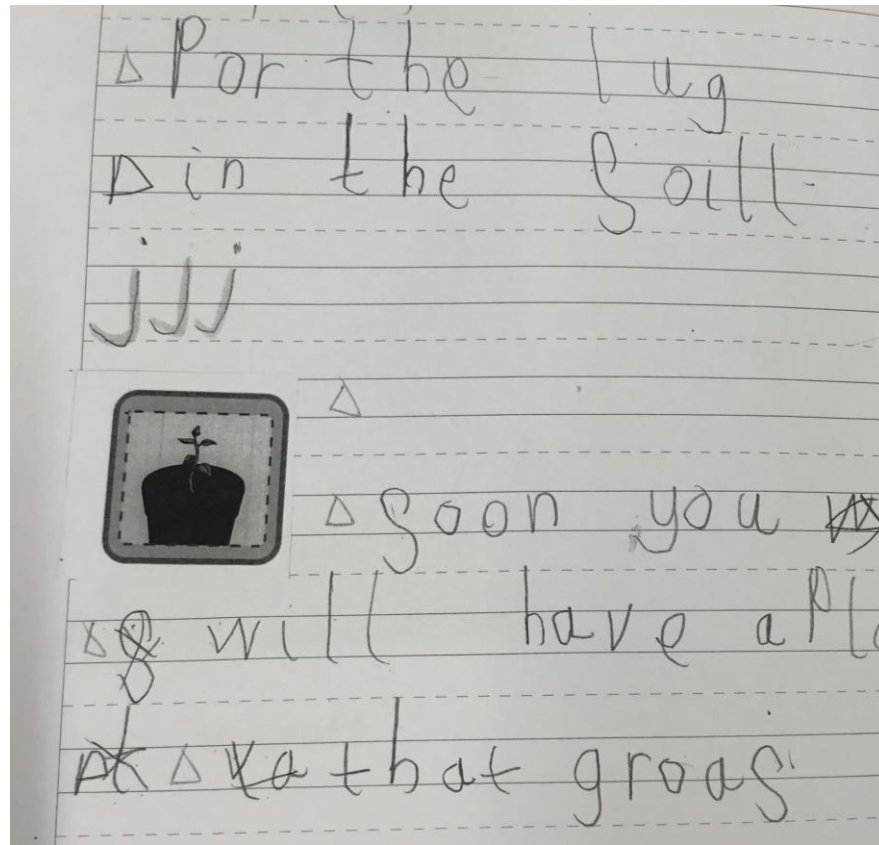 Por the lug
in the Soill.
jjj
Soon you
will have a Pl
that groas